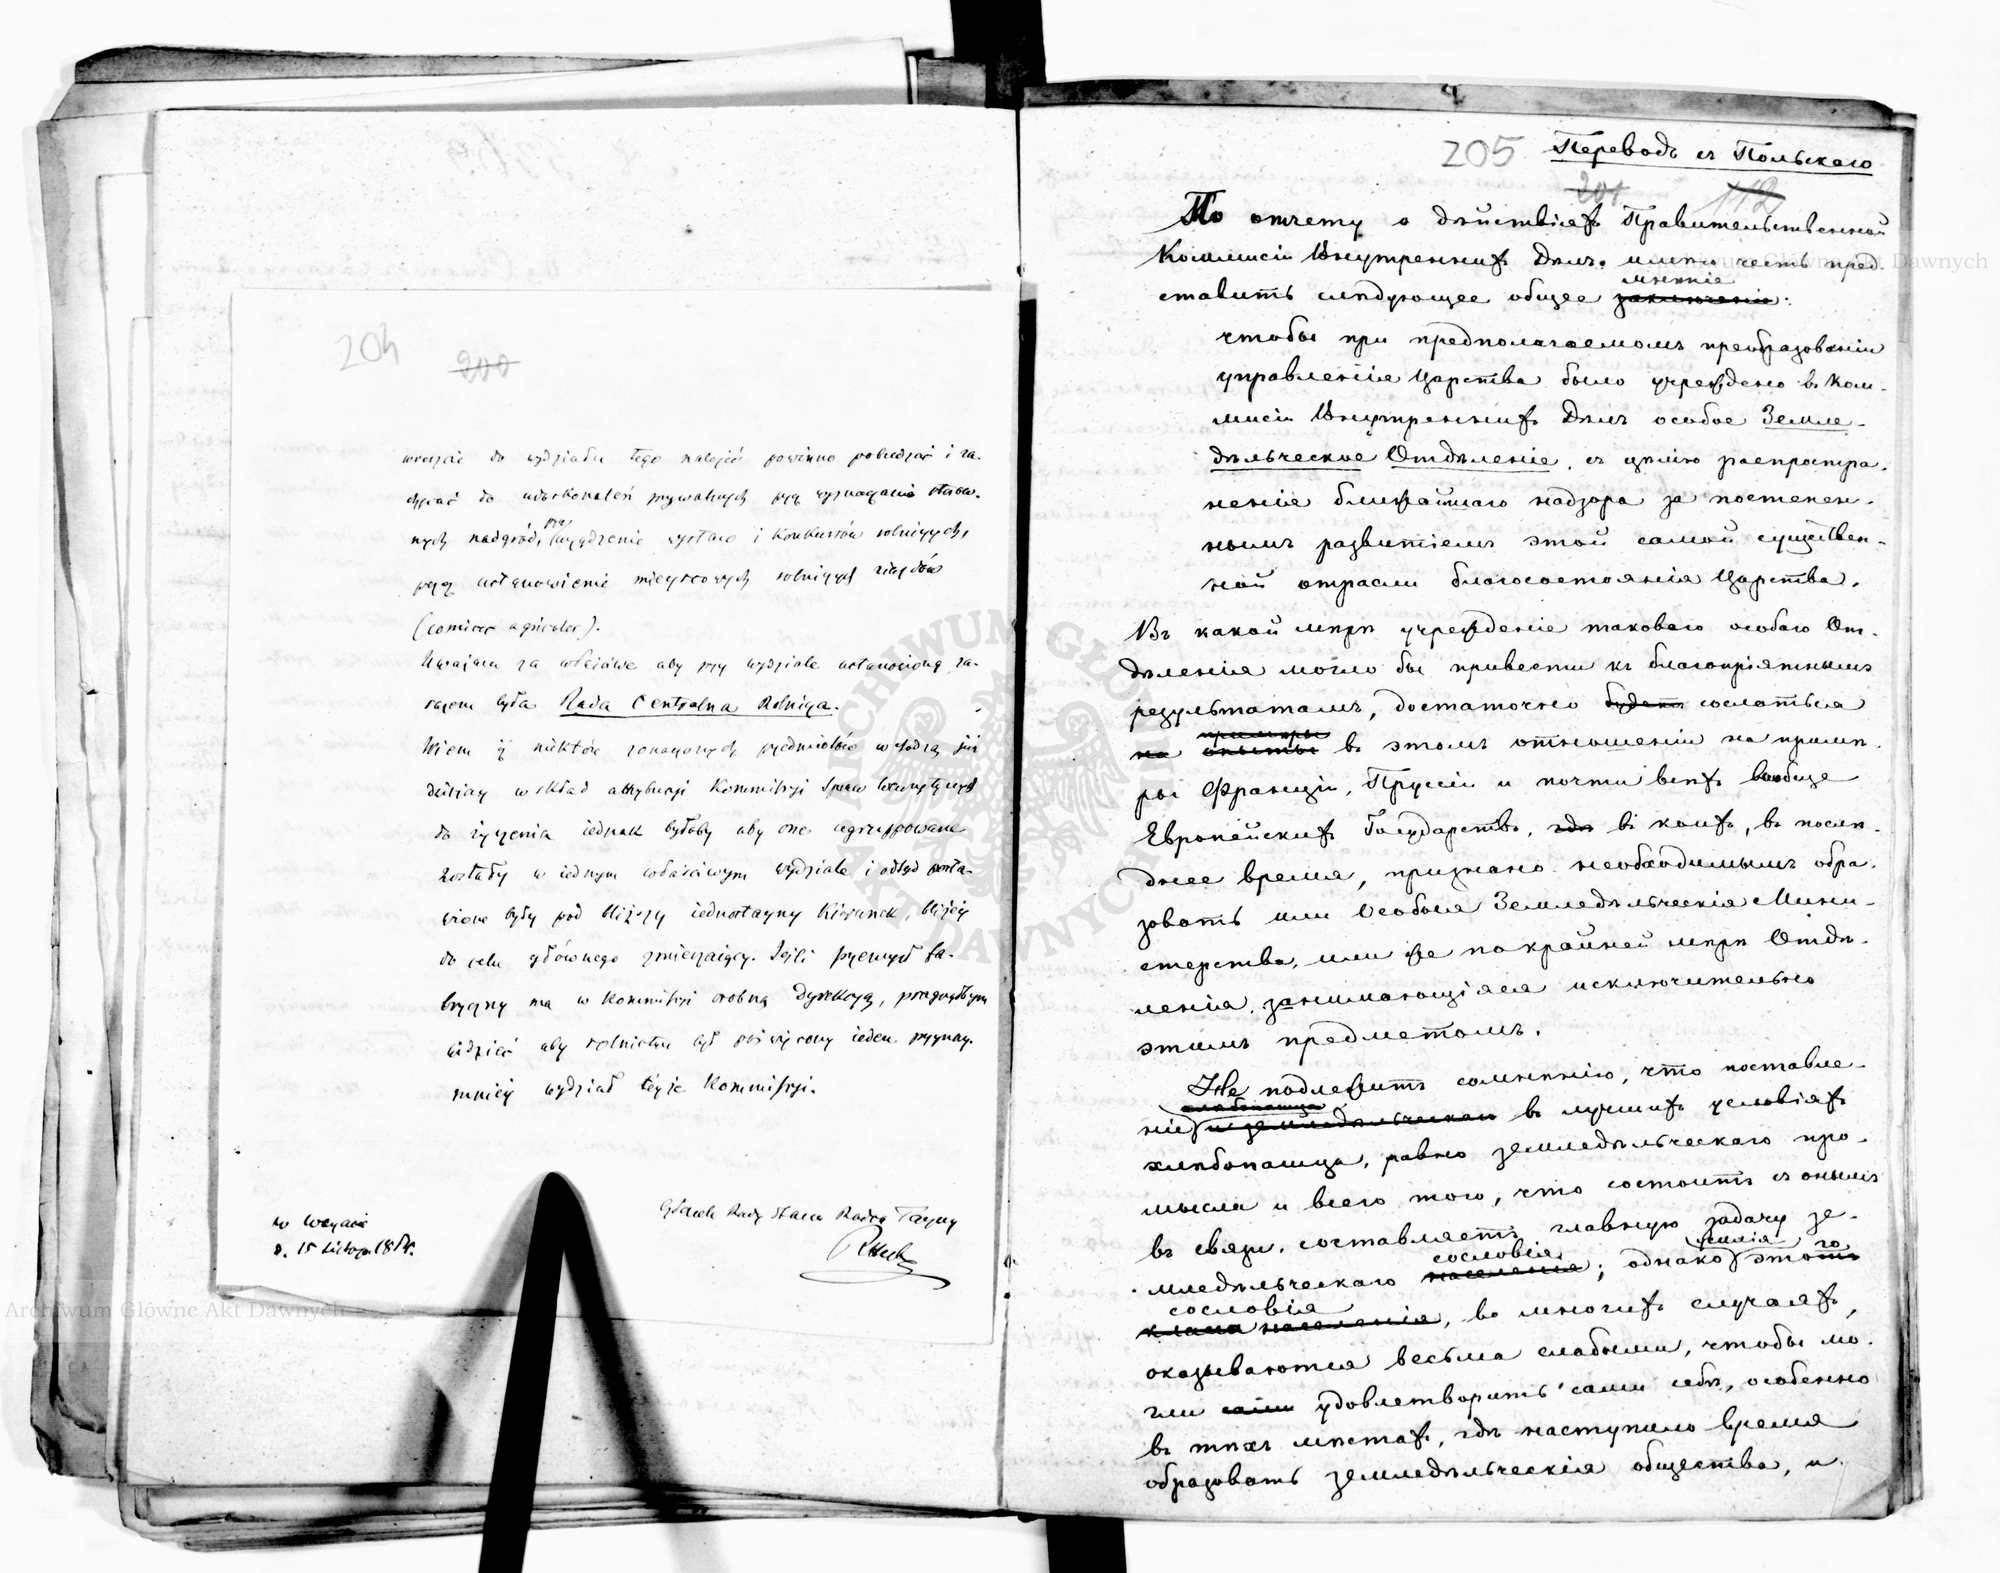 204
200
wreszcie do wydziału tego należeć powinno pobudzać i za-
chęcać do udoskonaleń prywatnych przez wyznaczanie stosow-
nych nadgród, przez urządzenie wystaw i konkursów rolniczych,
przez ustanowienie mieyscowych rolniczych ziazdów
(comices agricoles).
Uważam za właściwe aby przy wydziale ustanowioną za-
razem była Rada Centralna Rolnicza.
Wiem iż niektóre z onazonych przedmiotów wchodzą już
dzisiay w skład attrybucyi Kommissyi Spraw Wewnętrznych
do życzenia iednak byłoby aby one ugruppowane
zostały w iednym właściwym wydziale i odtąd posta-
wione były pod bliższy iednostayny kierunek, bliżey
do celu głównego zmierzaiący. Jeśli przemysł fa-
bryczny ma w Kommissyi osobną Dyrekcyą, pragnąłbym
widzieć aby rolnictwu był poświęcony ieden przynay-
mniey wydział teyże Kommissyi.
w Warszawie
d. 15 Listop. 18
Członek Rady Stanu Radca Tayny
205
Переводъ съ Польскаго
201
112
По отчету о дѣйствіяхъ Правительственной
Коммисіи Внутреннихъ Дѣлъ имѣю честь пред-
мнѣніе
ставить слѣдующее общее заключеніе:
чтобы при предполагаемомъ преобразованіи
управленія Царства было учреждено въ Ком-
мисіи Внутреннихъ Дѣлъ особое Земле-
дѣльческое Отдѣленіе, съ цѣлію распростра-
ненія ближайшаго надзора за постепен-
нымъ развитіемъ этой самой существен-
ной отрасли благосостоянія Царства.
Въ какой мѣрѣ учрежденіе таковаго особаго От-
дѣленія могло бы привести къ благопріятнымъ
результатамъ, достаточно будетъ сослаться
примѣры
на опыты въ этомъ отношеніи на примѣ-
ры Франціи, Пруссіи и почти всѣхъ вообще
Европейскихъ Государствъ, гдѣ въ коихъ, въ послѣ-
днее время, признано необходимымъ обра-
зовать или Особыя Земледѣльческія Мини-
стерства, или же по крайней мѣрѣ Отдѣ-
ленія, занимающіяся исключительно
этимъ предметомъ.
Не подлежитъ сомнѣнію, что поставле-
хлѣбопашца
ніе и земледѣльческаго въ лучшихъ условіяхъ
хлѣбопашца, равно земледѣльческаго про-
мысла и всего того, что состоитъ съ онымъ
въ связи, составляетъ главную задачу зе-
сословія
мледѣльческаго населенія; однако этого
сословія
класса населенія, во многихъ случаяхъ,
оказываются весьма слабыми, чтобы мо-
гли сами удовлетворить сами себѣ, особенно
въ тѣхъ мѣстахъ, гдѣ наступило время
образовать земледѣльческія общества, и
Archiwum Główne Akt Dawnych
Archiwum Główne Akt Dawnych
ARCHIWUM GŁÓWNE AKT DAWNYCH